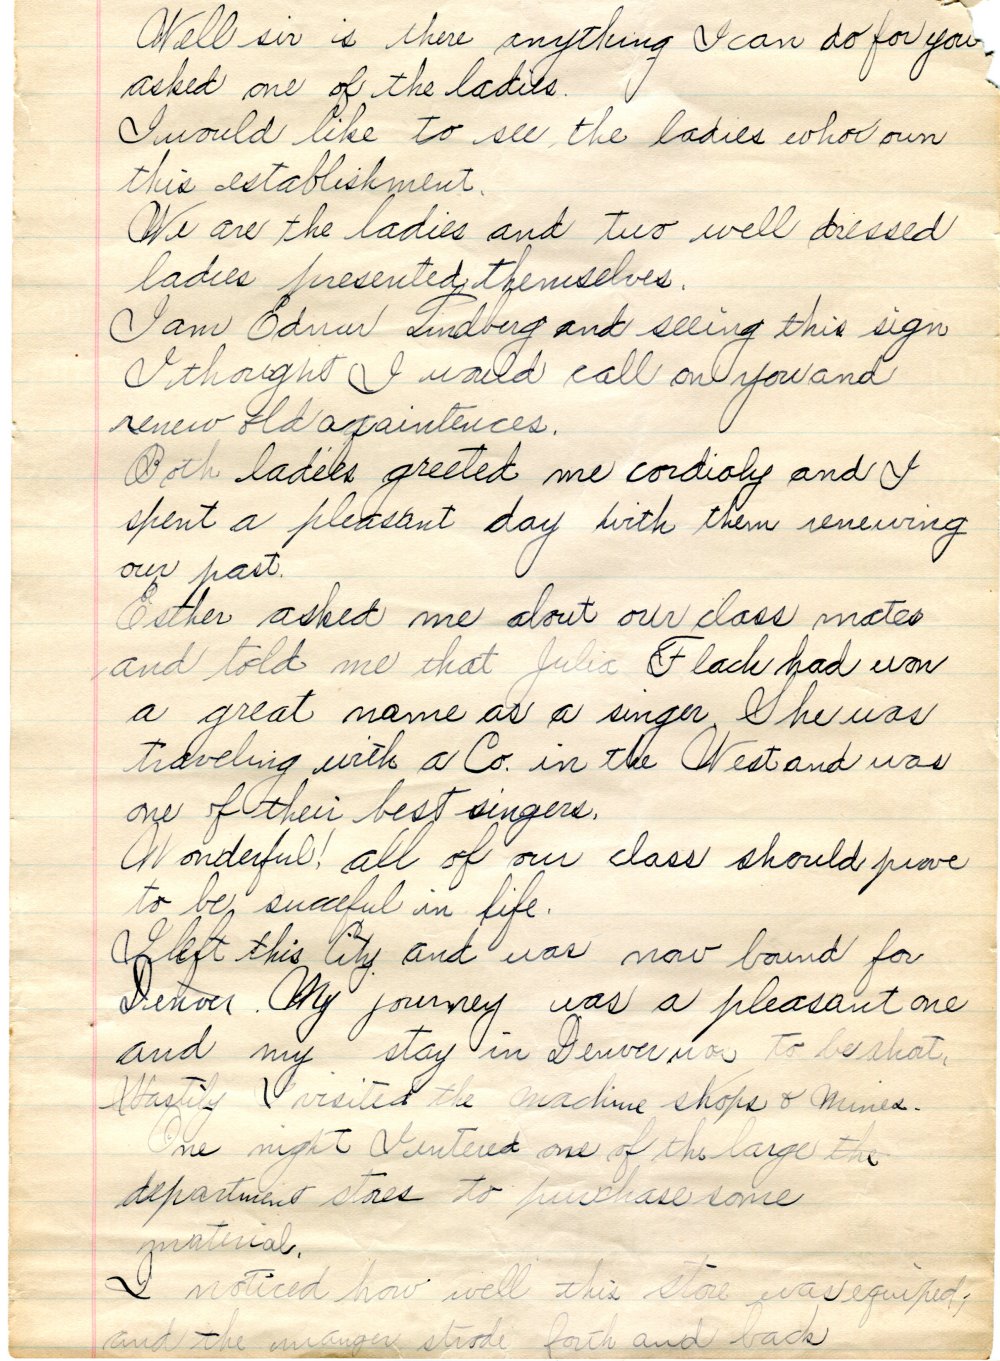 Well sir is there anything I can do for you
asked one of the ladies.
I would like to see the ladies who own
this establishment.
We are the ladies and two well dressed
ladies presented themselves.
I am Edmur Lindberg and seeing this sign
I thought I would call on you and
renew old aqaintences.
Both ladies greeted me cordioly and I
spent a pleasant day with them renewing
our past.
Esther asked me about our class mates
and told me that Julia Flack had won
a great name as a singer. She was
traveling with a Co. in the West and was
one of their best singers.
Wonderful! all of our class should prove
to be succeful in life.
I left this City and was now bound for
Denver. My journey was a pleasant one
and my stay in Denver was to be short.
Hastily I visited the machine shops & mines.
One night I entered one of the large the
department stores to purchase some
material.
I noticed how well this store was equiped;
and the manger strode forth and back